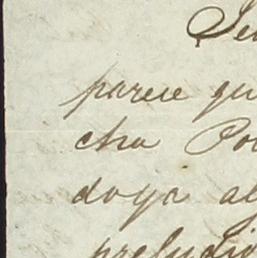 parece qu
cha Po
doya al
preludio